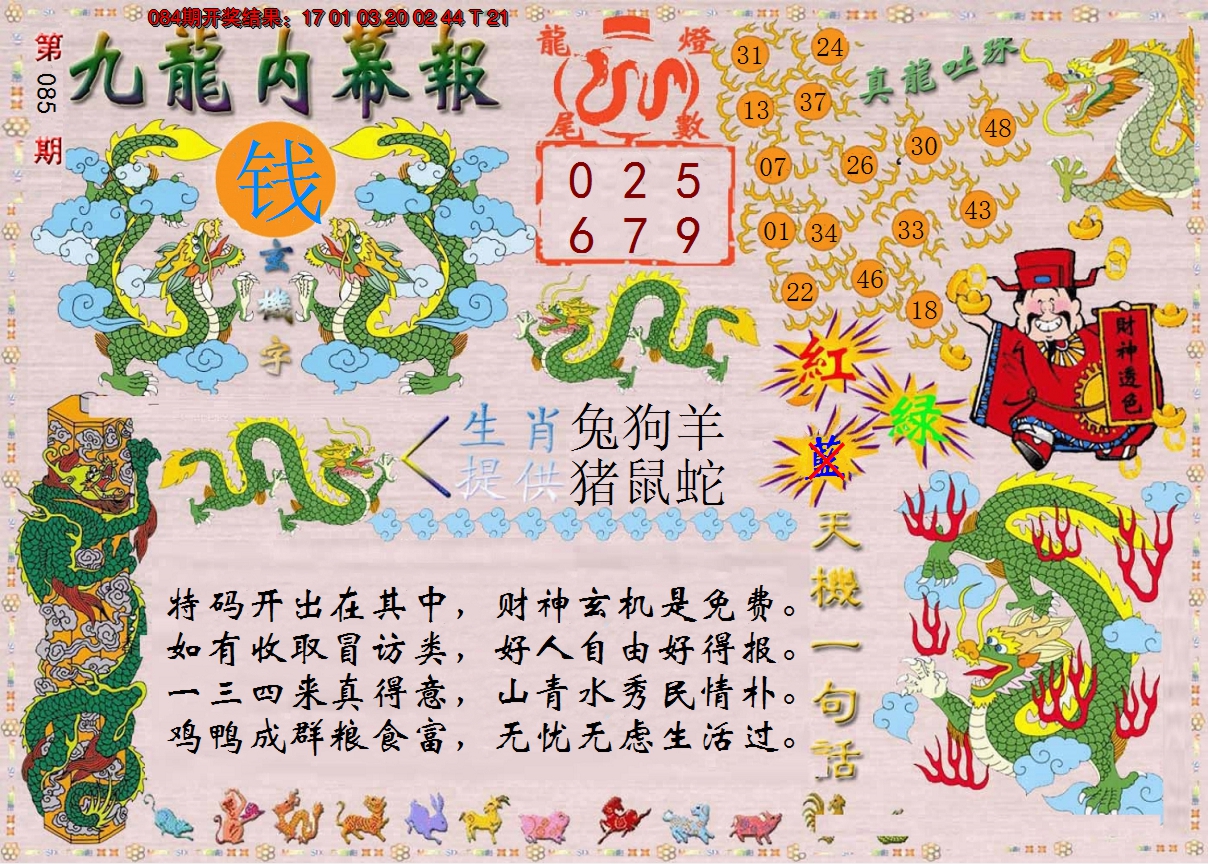 084期开奖结果：17 01 03 20 02 44 T 21
第
085
期
九龍内幕報
钱
玄
機
字
龍燈
尾數
0 2 5
6 7 9
真龍吐珠
31
24
13
37
07
26
30
48
01
34
33
43
22
46
18
紅
綠
藍
財神透色
生肖
提供
兔狗羊
猪鼠蛇
特码开出在其中，财神玄机是免费。
如有收取冒访类，好人自由好得报。
一三四来真得意，山青水秀民情朴。
鸡鸭成群粮食富，无忧无虑生活过。
天機一句话